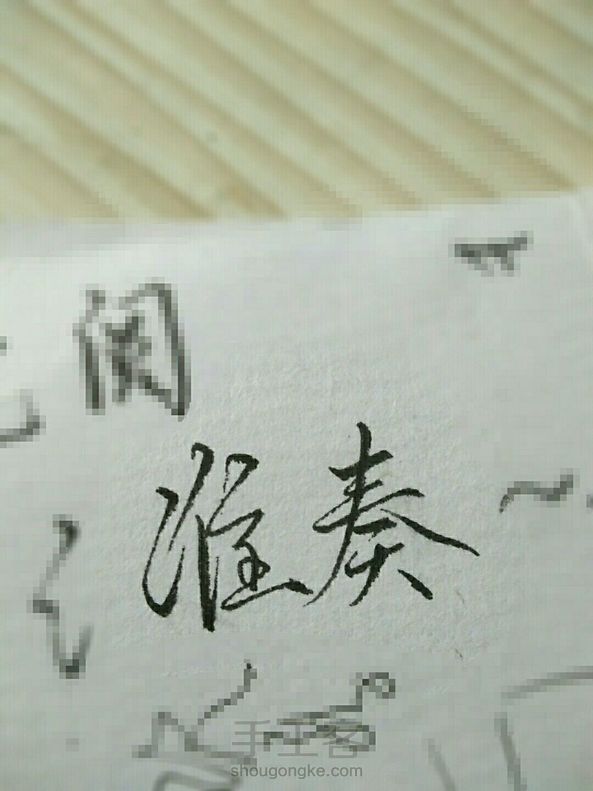 阅
准奏
手工客
shougongke.com